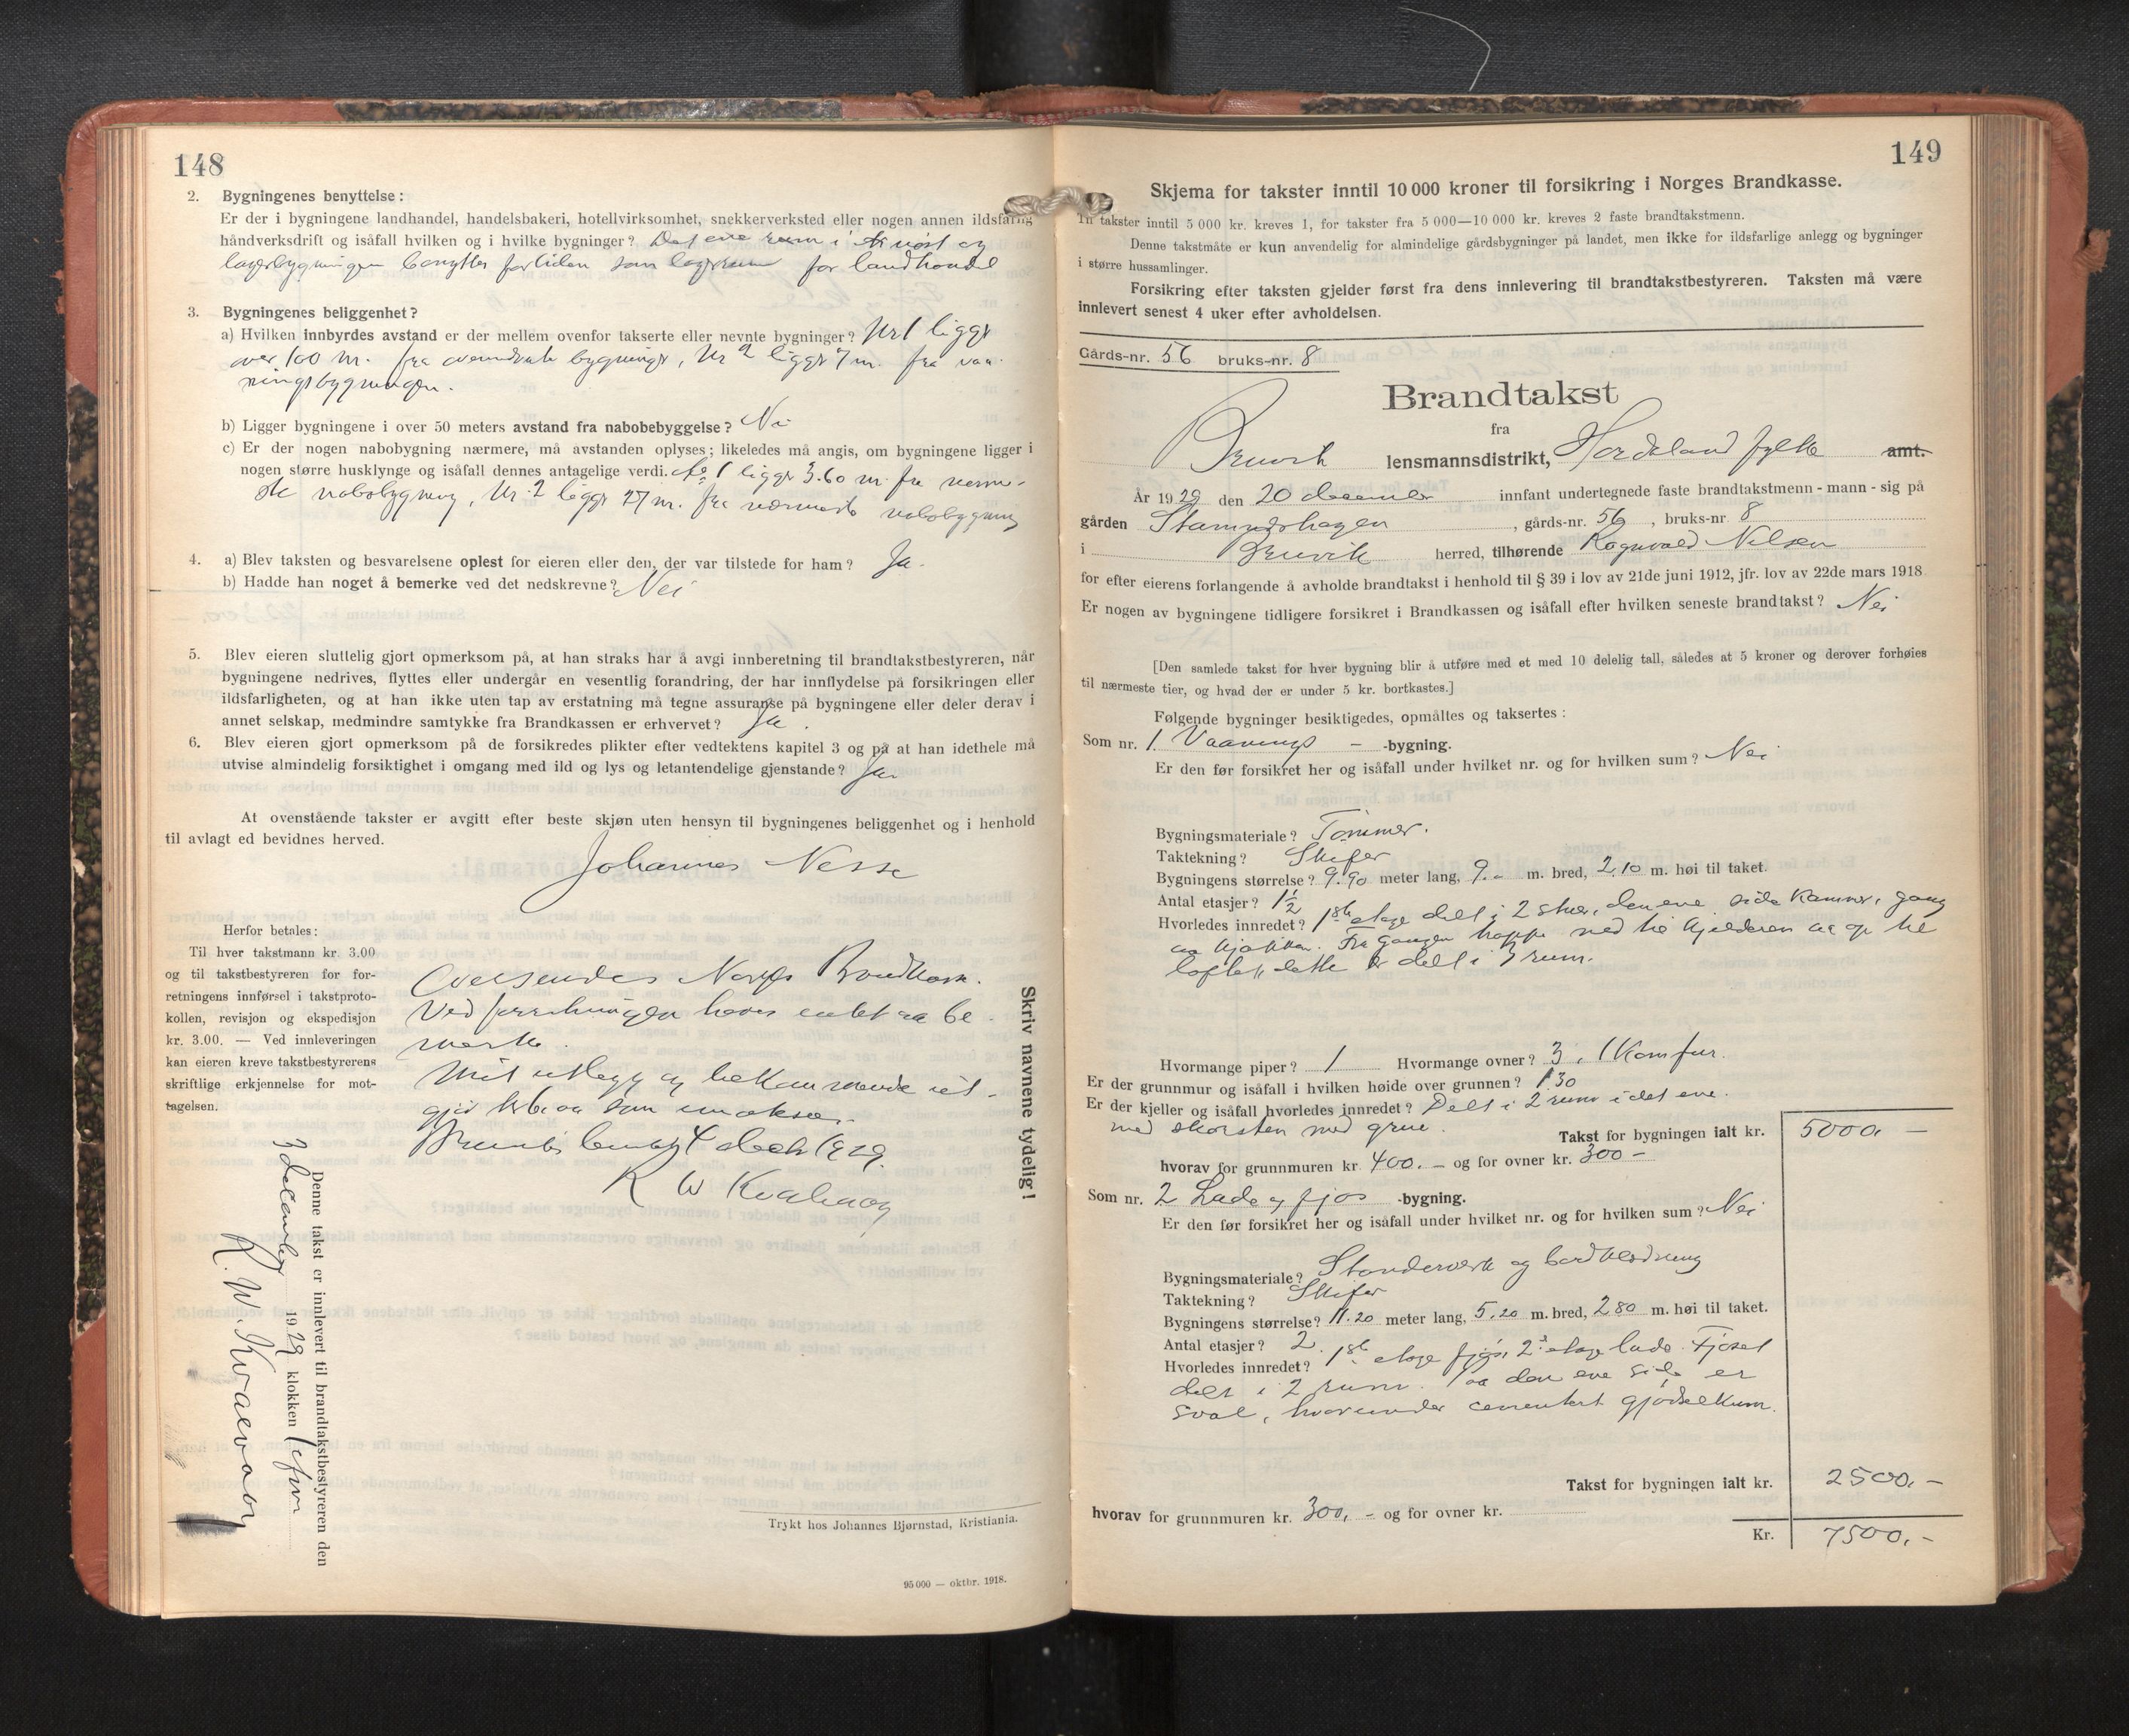 148
2. Bygningenes benyttelse:
Er der i bygningene landhandel, handelsbakeri, hotellvirksomhet, snekkerverksted eller nogen annen ildsfarlig
håndverksdrift og isåfall hvilken og i hvilke bygninger? Det ene rum i nøst og
lagerbygningen benyttes fortiden som lagerrum for landhandel
3. Bygningenes beliggenhet?
a) Hvilken innbyrdes avstand er der mellem ovenfor takserte eller nevnte bygninger? Nr 1 ligger
over 100 m. fra bygninger, Nr 2 ligger 7 m. fra vaa-
ningsbygningen.
b) Ligger bygningene i over 50 meters avstand fra nabobebyggelse? Nei
c) Er der nogen nabobygning nærmere, må avstanden oplyses; likeledes må angis, om bygningene ligger i
nogen større husklynge og isåfall dennes antagelige verdi. No 1 ligger 3.60 m. fra nærme-
ste nabobygning, Nr. 2 ligger 27 m. fra nærmeste nabobygning
4. a) Blev taksten og besvarelsene oplest for eieren eller den, der var tilstede for ham? Ja.
b) Hadde han noget å bemerke ved det nedskrevne? Nei
5. Blev eieren sluttelig gjort opmerksom på, at han straks har å avgi innberetning til brandtakstbestyreren, når
bygningene nedrives, flyttes eller undergår en vesentlig forandring, der har innflydelse på forsikringen eller
ildsfarligheten, og at han ikke uten tap av erstatning må tegne assuranse på bygningene eller deler derav i
annet selskap, medmindre samtykke fra Brandkassen er erhvervet? Ja.
6. Blev eieren gjort opmerksom på de forsikredes plikter efter vedtektens kapitel 3 og på at han idethele må
utvise almindelig forsiktighet i omgang med ild og lys og letantendelige gjenstande? Ja.
At ovenstående takster er avgitt efter beste skjøn uten hensyn til bygningenes beliggenhet og i henhold
til avlagt ed bevidnes herved.
Johannes Nesse
Herfor betales:
Til hver takstmann kr. 3.00
og til takstbestyreren for for-
retningens innførsel i takstproto-
kollen, revisjon og ekspedisjon
kr. 3.00. — Ved innleveringen
kan eieren kreve takstbestyrerens
skriftlige erkjennelse for mot-
tagelsen.
Oversendes Norges Brandkasse.
Ved forretningen haves intet aa be-
merke.
Mit utlegg og bekommende ut-
gjør kr 6.00 som
Bruvik 4 decbr 1929.
R W Kvalvaag
Skriv navnene tydelig!
Denne takst er innlevert til brandtakstbestyreren den
3 december 1929 klokken 1 efm
R. W. Kvalvaag
Trykt hos Johannes Bjørnstad, Kristiania.
95 000 — oktbr. 1918.
149
Skjema for takster inntil 10 000 kroner til forsikring i Norges Brandkasse.
Til takster inntil 5 000 kr. kreves 1, for takster fra 5 000—10 000 kr. kreves 2 faste brandtakstmenn.
Denne takstmåte er kun anvendelig for almindelige gårdsbygninger på landet, men ikke for ildsfarlige anlegg og bygninger
i større hussamlinger.
Forsikring efter taksten gjelder først fra dens innlevering til brandtakstbestyreren. Taksten må være
innlevert senest 4 uker efter avholdelsen.
Gårds-nr. 56 bruks-nr. 8
Brandtakst
fra
Bruvik lensmannsdistrikt, Hordaland fylke amt.
År 1929 den 20 innfant undertegnede faste brandtakstmenn - mann - sig på
gården Stamneshagen, gårds-nr. 56, bruks-nr 8
i Bruvik herred, tilhørende Ragnvald Nilsen
for efter eierens forlangende å avholde brandtakst i henhold til § 39 i lov av 21de juni 1912, jfr. lov av 22de mars 1918
Er nogen av bygningene tidligere forsikret i Brandkassen og isåfall efter hvilken seneste brandtakst? Nei
[Den samlede takst for hver bygning blir å utføre med et med 10 delelig tall, således at 5 kroner og derover forhøies
til nærmeste tier, og hvad der er under 5 kr. bortkastes.]
Følgende bygninger besiktigedes, opmåltes og taksertes:
Som nr. 1 Vaanings - -bygning.
Er den før forsikret her og isåfall under hvilket nr. og for hvilken sum? Nei
Bygningsmateriale? Tømmer.
Taktekning? Skifer
Bygningens størrelse? 9.90 meter lang, 9.- m. bred, 2,10 m. høi til taket.
Antal etasjer? 1½
Hvorledes innredet? 1ste etage delt i 2 stuer, den ene side kammer, gang
og kjøkken. Fra gangen trappe ned til kjelderen og op til
loftet, dette er delt i 7 rum.
Hvormange piper? 1 Hvormange ovner? 3, 1 Komfur.
Er der grunnmur og isåfall i hvilken høide over grunnen? 1.30
Er der kjeller og isåfall hvorledes innredet? Delt i 2 rum i det ene
med skorsten med grue.
Takst for bygningen ialt kr. 5000. —
hvorav for grunnmuren kr. 400. — og for ovner kr. 300 —
Som nr. 2 Lade og fjøs -bygning.
Er den før forsikret her og isåfall under hvilket nr. og for hvilken sum? Nei
Bygningsmateriale? Standerverk og bordklædning
Taktekning? Skifer
Bygningens størrelse? 11.20 meter lang, 5.20 m. bred, 2.80 m. høi til taket.
Antal etasjer? 2.
Hvorledes innredet? 1ste etage fjøs, 2. etage lade. Fjøset
delt i 2 rum. Paa den ene side er
sval, hvorunder cementert gjødselkum.
Takst for bygningen ialt kr. 2500. —
hvorav for grunnmuren kr. 300. - og for ovner kr.
Kr. 7500. —